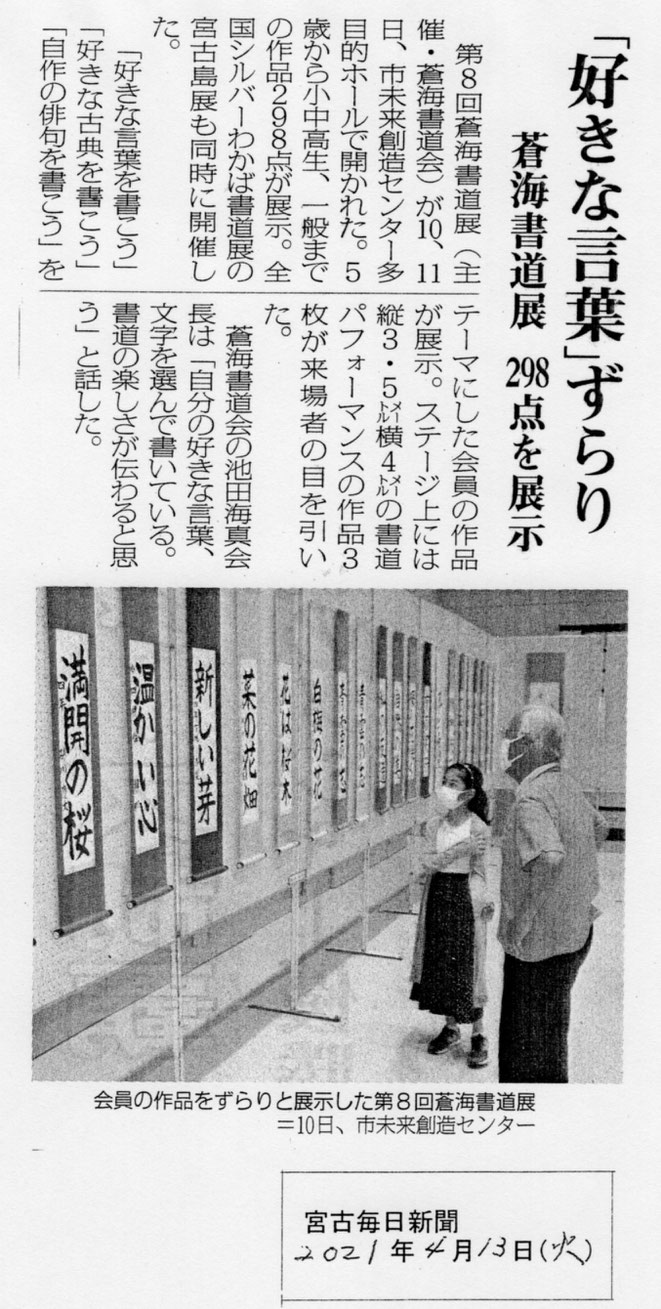 「好きな言葉」ずらり
蒼海書道展 298点を展示
第8回蒼海書道展（主
催・蒼海書道会）が10、11
日、市未来創造センター多
目的ホールで開かれた。5
歳から小中高生、一般まで
の作品298点が展示。全
国シルバーわかば書道展の
宮古島展も同時に開催し
た。
「好きな言葉を書こう」
「好きな古典を書こう」
「自作の俳句を書こう」を
テーマにした会員の作品
が展示。ステージ上には
縦3・5㍍横4㍍の書道
パフォーマンスの作品3
枚が来場者の目を引い
た。
蒼海書道会の池田海真会
長は「自分の好きな言葉、
文字を選んで書いている。
書道の楽しさが伝わると思
う」と話した。
満開の桜
温かい心
新しい芽
菜の花畑
花は桜木
白梅の花
会員の作品をずらりと展示した第8回蒼海書道展
＝10日、市未来創造センター
宮古毎日新聞
2021年4月13日(火)